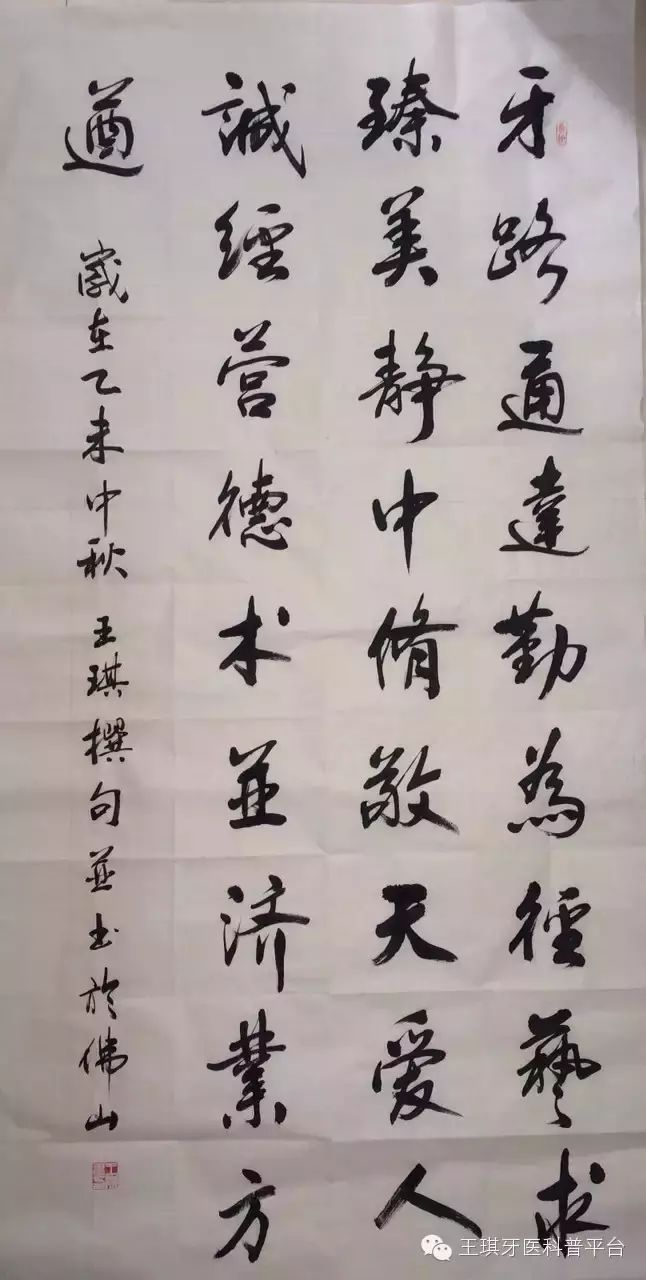 牙路通達勤為徑藝求
臻美靜中脩敬天愛人
誠經营德术並济業方
遒
歲在乙未中秋王琪撰句並书於佛山
王琪牙医科普平台